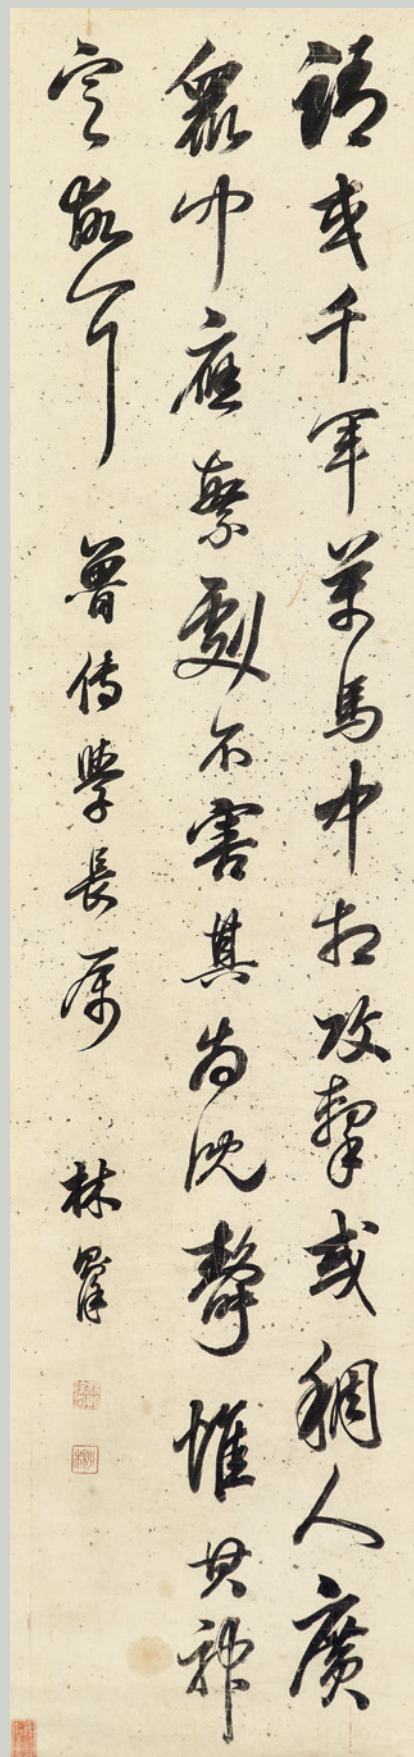 或千軍萬馬中相攻擊或稠人廣
眾中應繁劇不害其為沈靜惟其神
定故耳 曾傳學長屬 林則徐